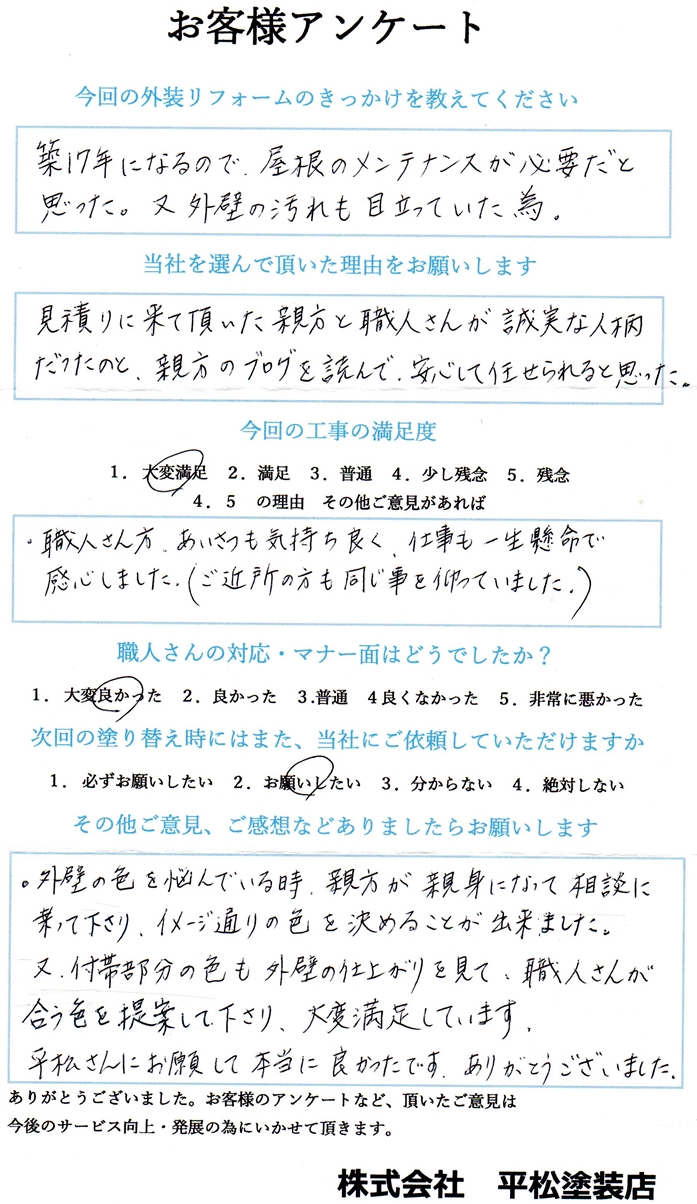 お客様アンケート
今回の外装リフォームのきっかけを教えてください
築17年になるので、屋根のメンテナンスが必要だと
思った。又外壁の汚れも目立っていた為。
当社を選んで頂いた理由をお願いします
見積りに来て頂いた親方と職人さんが誠実な人柄
だったのと、親方のブログを読んで、安心して任せられると思った。
今回の工事の満足度
1. 大変満足 2. 満足 3. 普通 4. 少し残念 5. 残念
4. 5 の理由 その他ご意見があれば
・職人さん方、あいさつも気持ち良く、仕事も一生懸命で
感心しました。(ご近所の方も同じ事を仰っていました。)
職人さんの対応・マナー面はどうでしたか？
1. 大変良かった 2. 良かった 3.普通 4良くなかった 5. 非常に悪かった
次回の塗り替え時にはまた、当社にご依頼していただけますか
1. 必ずお願いしたい 2. お願いしたい 3. 分からない 4. 絶対しない
その他ご意見、ご感想などありましたらお願いします
。外壁の色を悩んでいる時、親方が親身になって相談に
乗って下さり、イメージ通りの色を決めることが出来ました。
又、付帯部分の色も外壁の仕上がりを見て、職人さんが
合う色を提案して下さり、大変満足しています。
平松さんにお願して本当に良かったです。ありがとうございました。
ありがとうございました。お客様のアンケートなど、頂いたご意見は
今後のサービス向上・発展の為にいかせて頂きます。
株式会社 平松塗装店